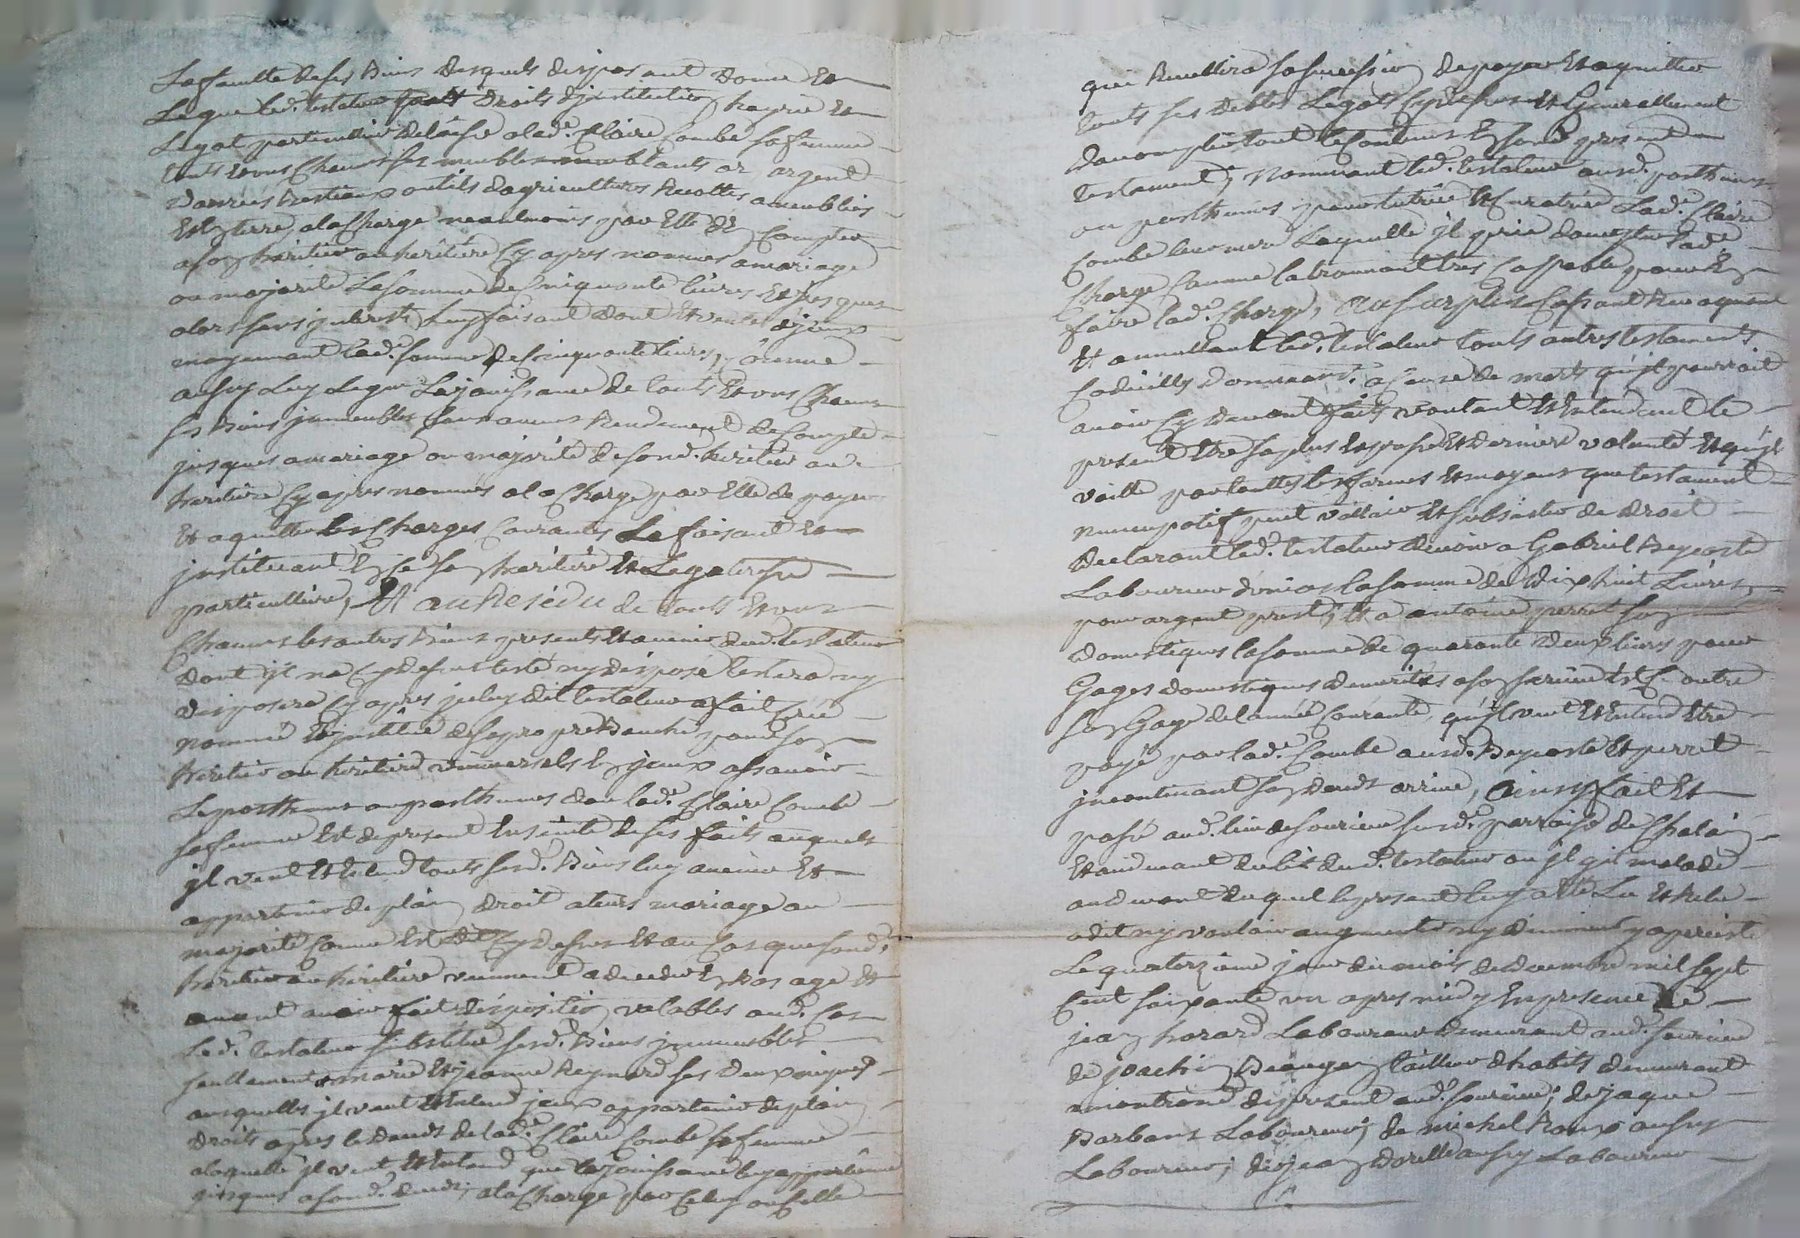 La faculté de ses biens desquels disposant donne et
Legue led. testateur droits d'institution hayrie et
Legat particullier delaisse a lad.e Claire Combe sa femme
touts et uns chacuns ses meubles meublants or, argent
danrées bestiaux outils dagriculture Recoltes ameublies
et en terre, a la charge neanmoins par elle de compter
a son heritier ou heritiere cy apres nommés a mariage
ou majorité la somme de cinquante livres et jusques
alors sans jnterets luy faisant dont et vente d'jceux
moyenant lad.e somme de cinquante livres, donne
aussy luy Legue La jouissance de touts et uns chacuns
ses biens jmmeubles sans aucun Rendement de compte
jusques a mariage ou majorité de sond. heritier ou
heritiere cy apres nommés a la charge par elle de payer
et aquitter les charges courantes La faisant et
jnstituant en ce son heritiere et Legateresse
particulliere, Et au Residu de touts et uns
chacuns les autres biens presents et avenir dud. testateur
dont jl n'a cy dessus testé ny disposé testera ny
disposera cy apres jceluy dit testateur a fait crée
nommé et jnstitué de sa propre bouche pour son
heritier ou heritiere universels en jceux assavoir
Le posthume ou posthumes dont lad.e Claire Combe
sa femme est de present enceinte de ses faits auquels
jl veut et entend touts sesd. biens luy avenir et
appartenir de plain droit a leurs mariage ou
majorité comme est dit cy dessus et au cas que sond.
heritier ou heritiere viennent a deceder en bas age et
avant avoir fait disposition valables aud. cas
Led. testateur substitue sesd. biens jmmeubles
seullement a marie et jeanne Reynard ses deux
ausquelles jl veut et entend jceux appartenir de plain
droit apres le deceds de lad.e Claire Combe sa femme
a laquelle jl veut et entend que la jouissance luy appartienne
jusques a sond. deceds, a la charge par celuy ou celle
qui Recullira sa succession de payer et aquitter
touts ses debtes Legats cy dessus et generallement
daccomplir tout le contenus en son present
testament, nommant led. testateur ausd. posthume
ou posthumes pour tutrice et curatrice Lad.e Claire
Combe leur mere Laquelle jl prie daccepter lad.e
charge comme la connoissant tres capable pour en
faire lad.e charge, au surplus cassant Revoquant
et annullant led. testateur touts autres testaments
codicilles donnaons. a cause de mort qu'jl pourroit
avoir cy devant faits voulant et entendant le
present etre sa plus expresse et derniere volonté et qu'jl
vaille par touttes les formes et moyens que testament
nuncupatif peut valloir et subsister de droit
declarant led. testateur devoir a Gabriel Reycoste
Laboureur d'onias la somme de dix huit Livres
pour argent presté, et a antoine perret son
domestique la somme de quarante deux livres pour
Gages domestiques demerités a son service et ce outre
son Gage de lannée courante, qu'jl veut et entend etre
payé par lad.e Combe ausd. Reycoste et perret
jncontinant son deceds arrivé, Ainsy fait et
passé aud. lieu de sourciau susd. parroisse de
et audevant du lit dud. testateur ou jl git malade
audevant duquel le present luy a été Lu et Relu
a dit n'y vouloir augmenter ny diminuer y a persisté
Le quatorzieme jour du mois de decembre mil sept
cent soixante un apres midy En presence de
jean horard Laboureur demeurant aud. sourciau
de joachin Beauga tailleur d'habits demeurant
a montrond de present aud. sourciau; de jaque
Barbans Laboureur; de michel Roux aussy
Laboureur; de jean aussy Laboureur